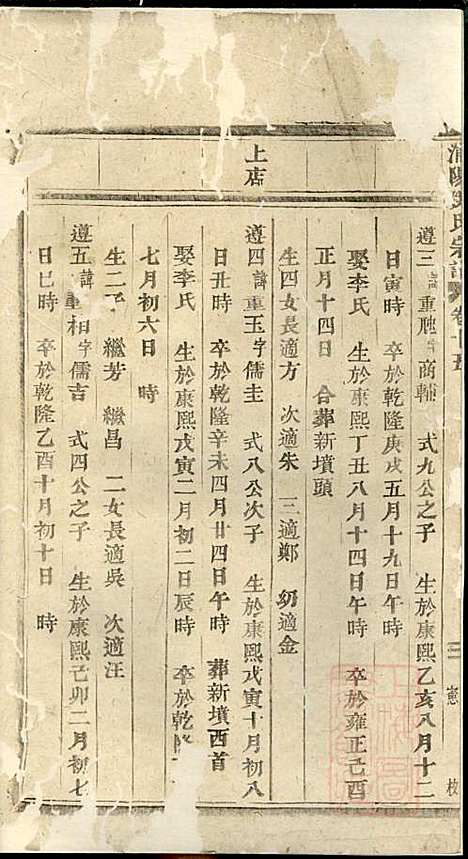 宗譜
遵三諱重 字商輔 式九公之子 生於康熙乙亥八月十二
日寅時 卒於乾隆庚戌五月十九日午時
娶李氏 生於康熙丁丑八月十四日午時 卒於雍正己酉
正月十四日 合葬新墳頭
生四女長適方 次適朱 三適鄭 幼適金
上店
遵四諱重玉字儒圭 式八公次子 生於康熙戊寅十月初八
日丑時 卒於乾隆辛未四月廿四日午時 葬新墳西首
娶李氏 生於康熙戊寅二月初二日辰時 卒於乾
七月初六日 時
生二子 繼芳 繼昌 二女長適吳 次適汪
遵五諱重相字儒吉 式四公之子 生於康熙己卯二月初七
日巳時 卒於乾隆乙酉十月初十日 時